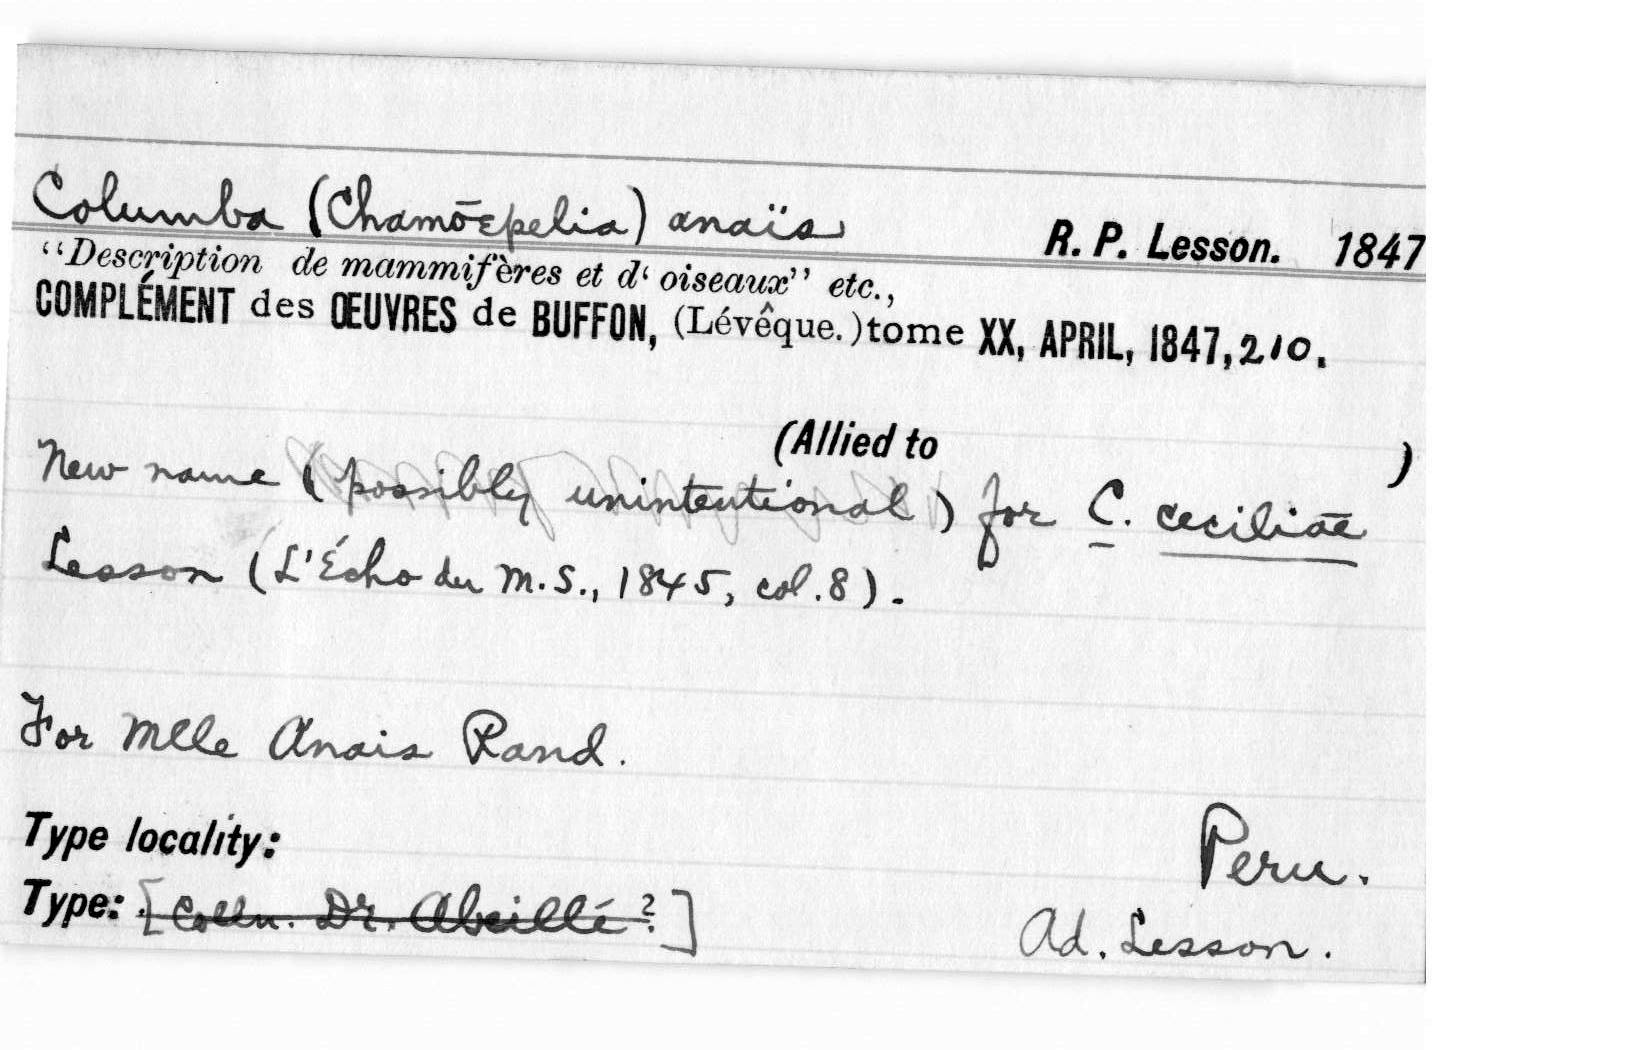 Columba (Chamœpelia) anaïs R. P. Lesson. 1847
“Description de mammifères et d‘ oiseaux” etc.,
COMPLÉMENT des ŒUVRES de BUFFON, (Lévêque.) tome XX, APRIL, 1847, 210.
(Allied to )
New name (possibly unintentional) for C. ceciliae
Lesson (L'Écho du M.S., 1845, col. 8).
For Mlle Anais Rand.
Type locality: Peru.
Type: [Colln. Dr. Abeillé?] Ad. Lesson.